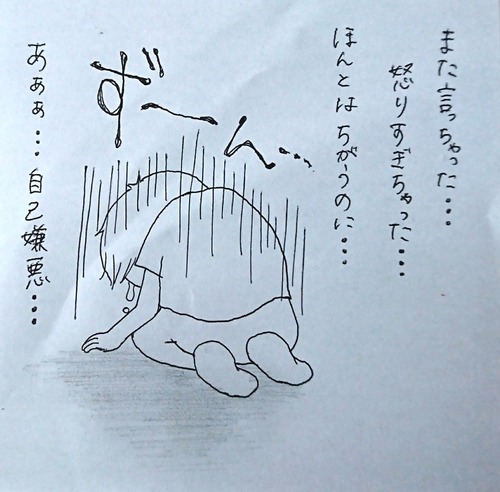 また言っちゃった・・・
怒りすぎちゃった・・・
ほんとは ちがうのに・・・
ず〜ん・・・
あぁぁ・・・自己嫌悪・・・